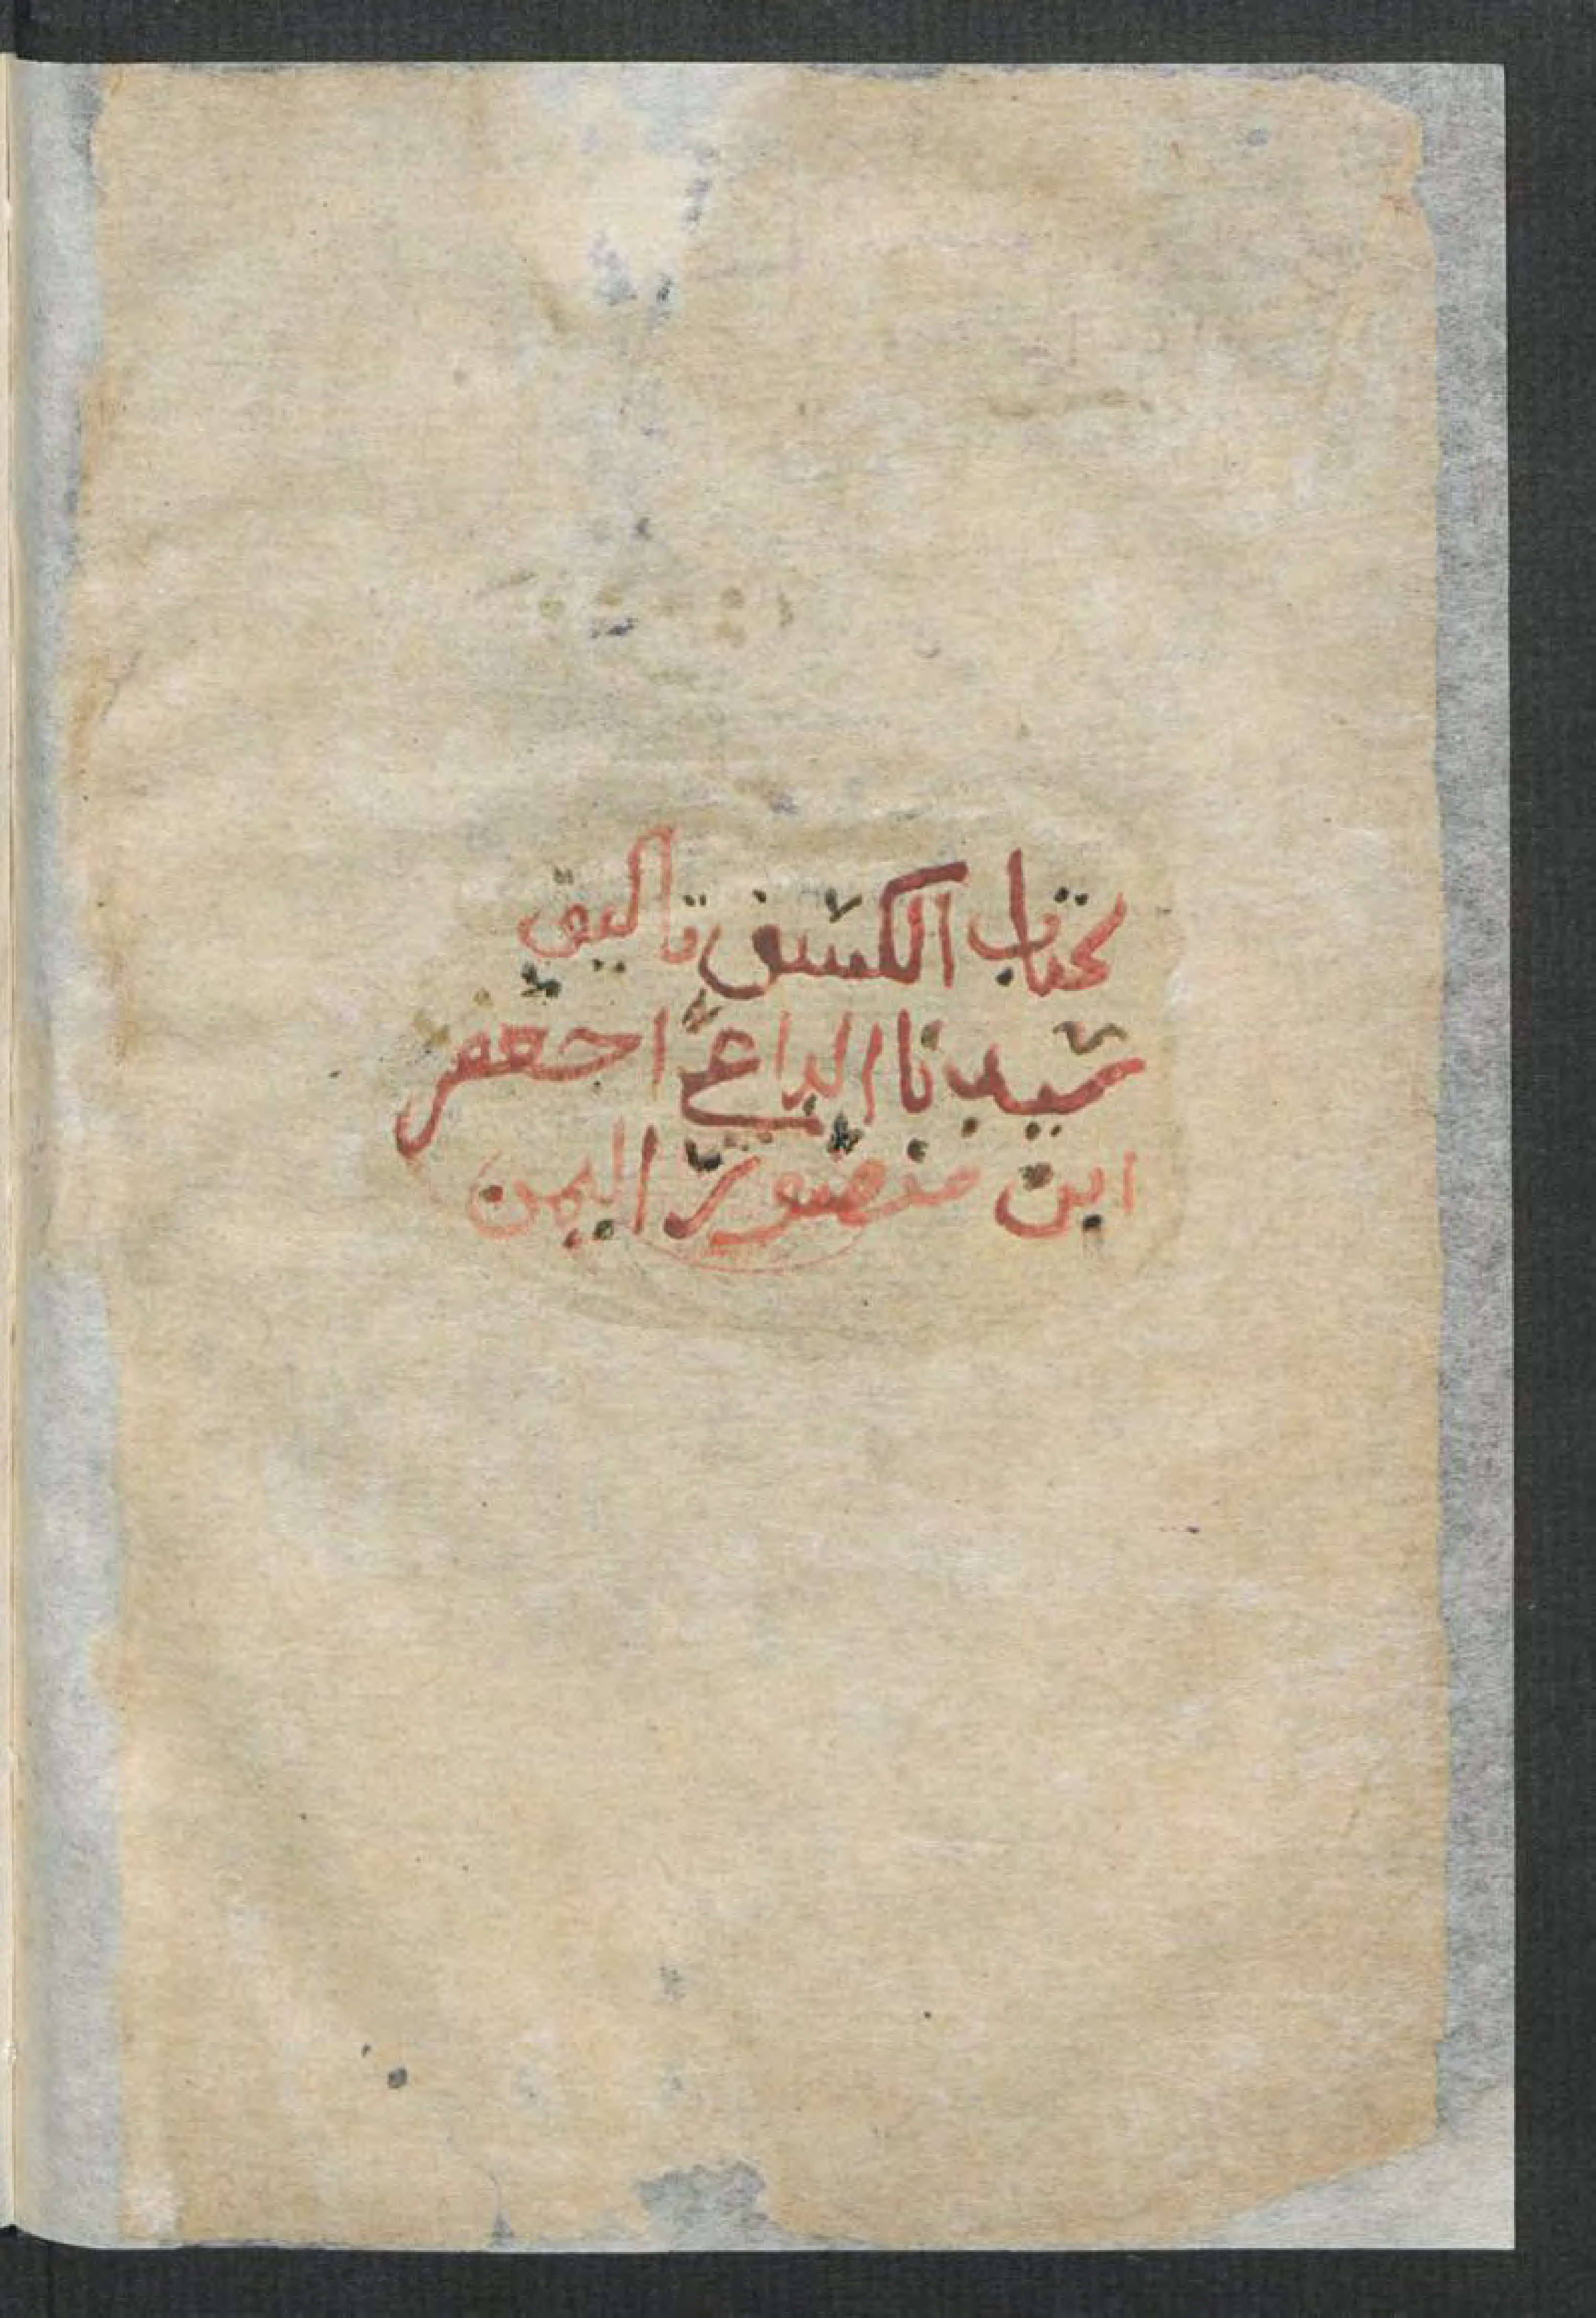 كتاب الكشف تاليف
سيدنا الداعي اجعفر
ابن منصور اليمن